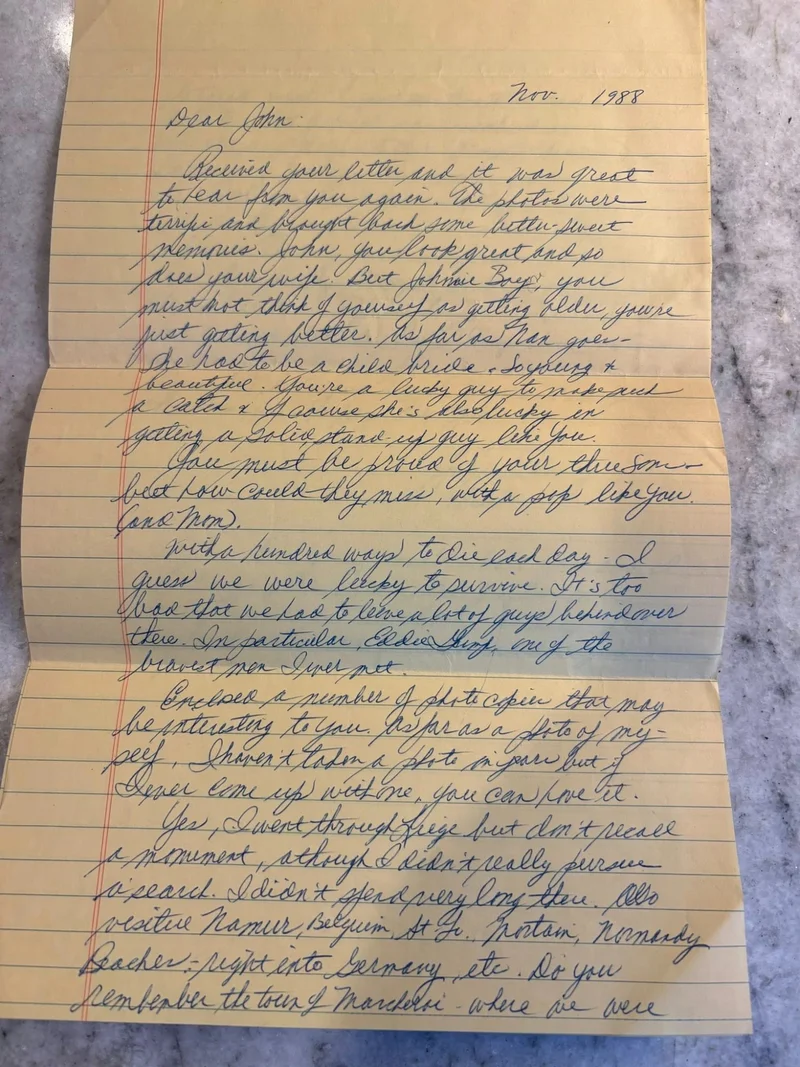 Nov. 1988
Dear John:
Received your letter and it was great
to hear from you again. The photos were
terrific and brought back some bitter-sweet
memories. John, you look great and so
does your wife. But Johnnie Boy, you
must not think of yourself as getting older, you're
just getting better. As far as Nan goes-
she had to be a child bride. So young &
beautiful. You're a lucky guy to make such
a catch & of course she's also lucky in
getting a solid, stand-up guy like you.
You must be proud of your three sons-
but how could they miss, with a pop like you.
(and Mom).
With a hundred ways to die each day - I
guess we were lucky to survive. It's too
bad that we had to leave a lot of guys behind over
there. In particular, Eddie one of the
bravest men I ever met.
Enclosed a number of photo copies that may
be interesting to you. As far as a photo of my-
self, I haven't taken a photo in years but if
I ever come up with one, you can have it.
Yes, I went through Liege but don't recall
a monument, although I didn't really pursue
a search. I didn't spend very long there. Also
visited Namur, Belguim, St Lo., Mortain, Normandy
Beaches - right into Germany, etc. Do you
remember the town of - where we were